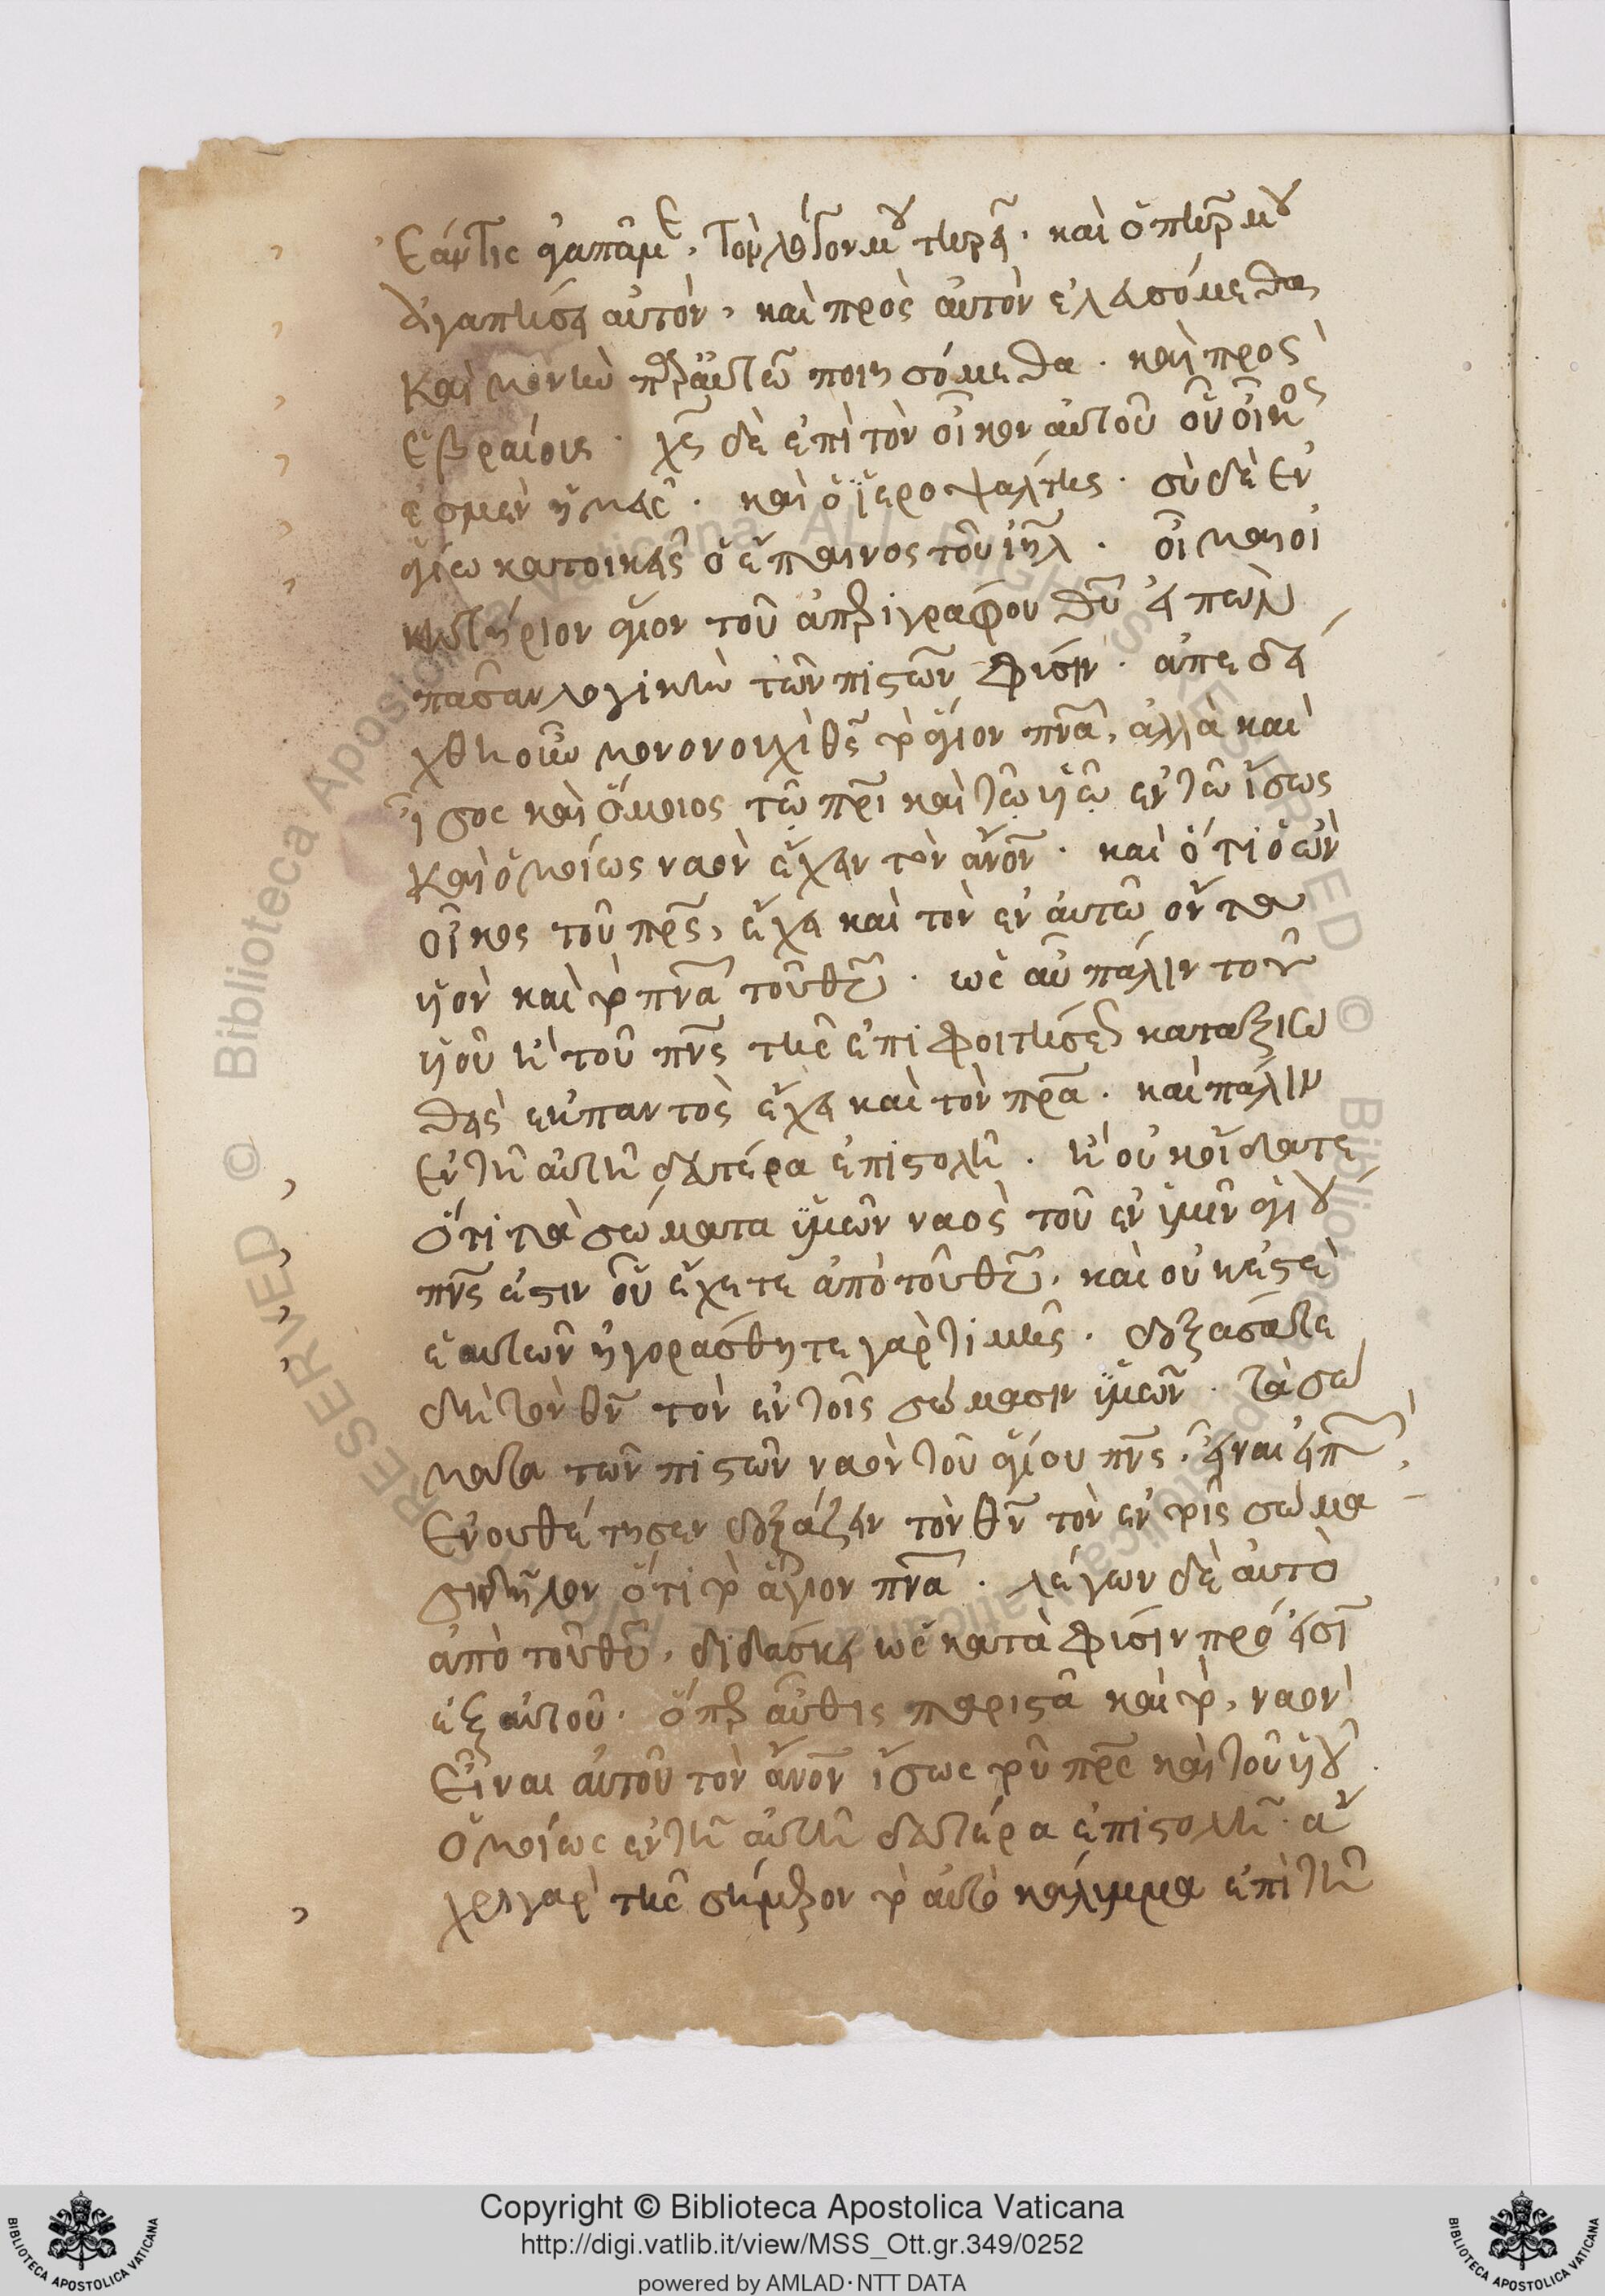 Ἐάν τις ἀγαπᾷ με, τὸν λόγον μου τηρεῖ· καὶ ὁ πηρ μου
ἀγαπήσει αὐτὸν, καὶ πρὸς αὐτὸν ἐλευσόμεθα
καὶ μονὴν παρ αὐτῶ ποιησόμεθα· καὶ πρὸς
ἑβραίους· χς δὲ ἐπὶ τὸν οἶκον αὐτοῦ οὗ οἶκος
ἐσμὲν ἡμεῖς· καὶ ὁ ἱεροψάλτης· σὺ δὲ ἐν
ἁγίω κατοικεῖς ὁ ἔπαινος τοῦ ιηλ· οἰκητοι
κητήριον ἅγιον τοῦ ἀπεριγράφου θυ εἰπὼν
πᾶσαν λογικὴν τῶν πιστῶν φύσιν· ἀπεδεί
χθη οὖν μονονουχὶ θς τὸ ἅγιον πνα, ἀλλὰ καὶ
ἴσος καὶ ὅμοιος τῶ πρι καὶ τῶ υἱῶ ἐν τῶ ἴσως
καὶ ὁμοίως ναὸν ἔχειν τὸν ανον· καὶ ὅτι ὁ ὢν
οἶκος τοῦ πρς, ἔχει καὶ τὸν ἐν αὐτῶ ὄντα
υἱὸν καὶ τὸ πνα τοῦ θυ· ὡς αὖ πάλιν τοῦ
υἱοῦ ἢ τοῦ πνς τῆς ἐπιφοιτήσεως καταξιω
θεὶς ἐκ παντὸς ἔχει καὶ τὸν πρα· καὶ πάλιν
ἐν τῆ αὐτῆ δευτέρα ἐπιστολῆ· ἢ οὐκ οἴδατε
ὅτι τὰ σώματα ὑμῶν ναὸς τοῦ ἐν ὑμῖν ἁγίου
πνς ἐστιν οὗ ἔχετε ἀπὸ τοῦ θυ, καὶ οὐκ ἐστὲ
ἑαυτῶν ἠγοράσθητε γὰρ τιμῆς· δοξάσατε
δὴ τὸν θν τὸν ἐν τοῖς σώμασιν ὑμῶν· τὰ σώ
ματα τῶν πιστῶν ναὸν τοῦ ἁγίου πνς, εἶναι εἰπὼν,
ἐνουθέτησεν δοξάζειν τὸν θν τὸν ἐν τοῖς σώμα
σι δῆλον ὅτι τὸ ἅγιον πνα· λέγων δὲ αὐτὸ
ἀπὸ τοῦ θυ, διδάσκει ὡς κατὰ φύσιν πρόεισι
ἐξ αὐτοῦ· ὅπερ αὖθις παριστᾶ καὶ τὸ, ναὸν
εἶναι αὐτοῦ τὸν ανον ἴσως τοῦ πρς καὶ τοῦ υἱοῦ·
ὁμοίως ἐν τῆ αὐτῆ δευτέρα ἐπιστολῆ· ἄ
χρι γὰρ τῆς σήμερον τὸ αὐτὸ κάλυμμα ἐπὶ τῆ
Copyright © Biblioteca Apostolica Vaticana
http://digi.vatlib.it/view/MSS_Ott.gr.349/0252
powered by AMLAD·NTT DATA